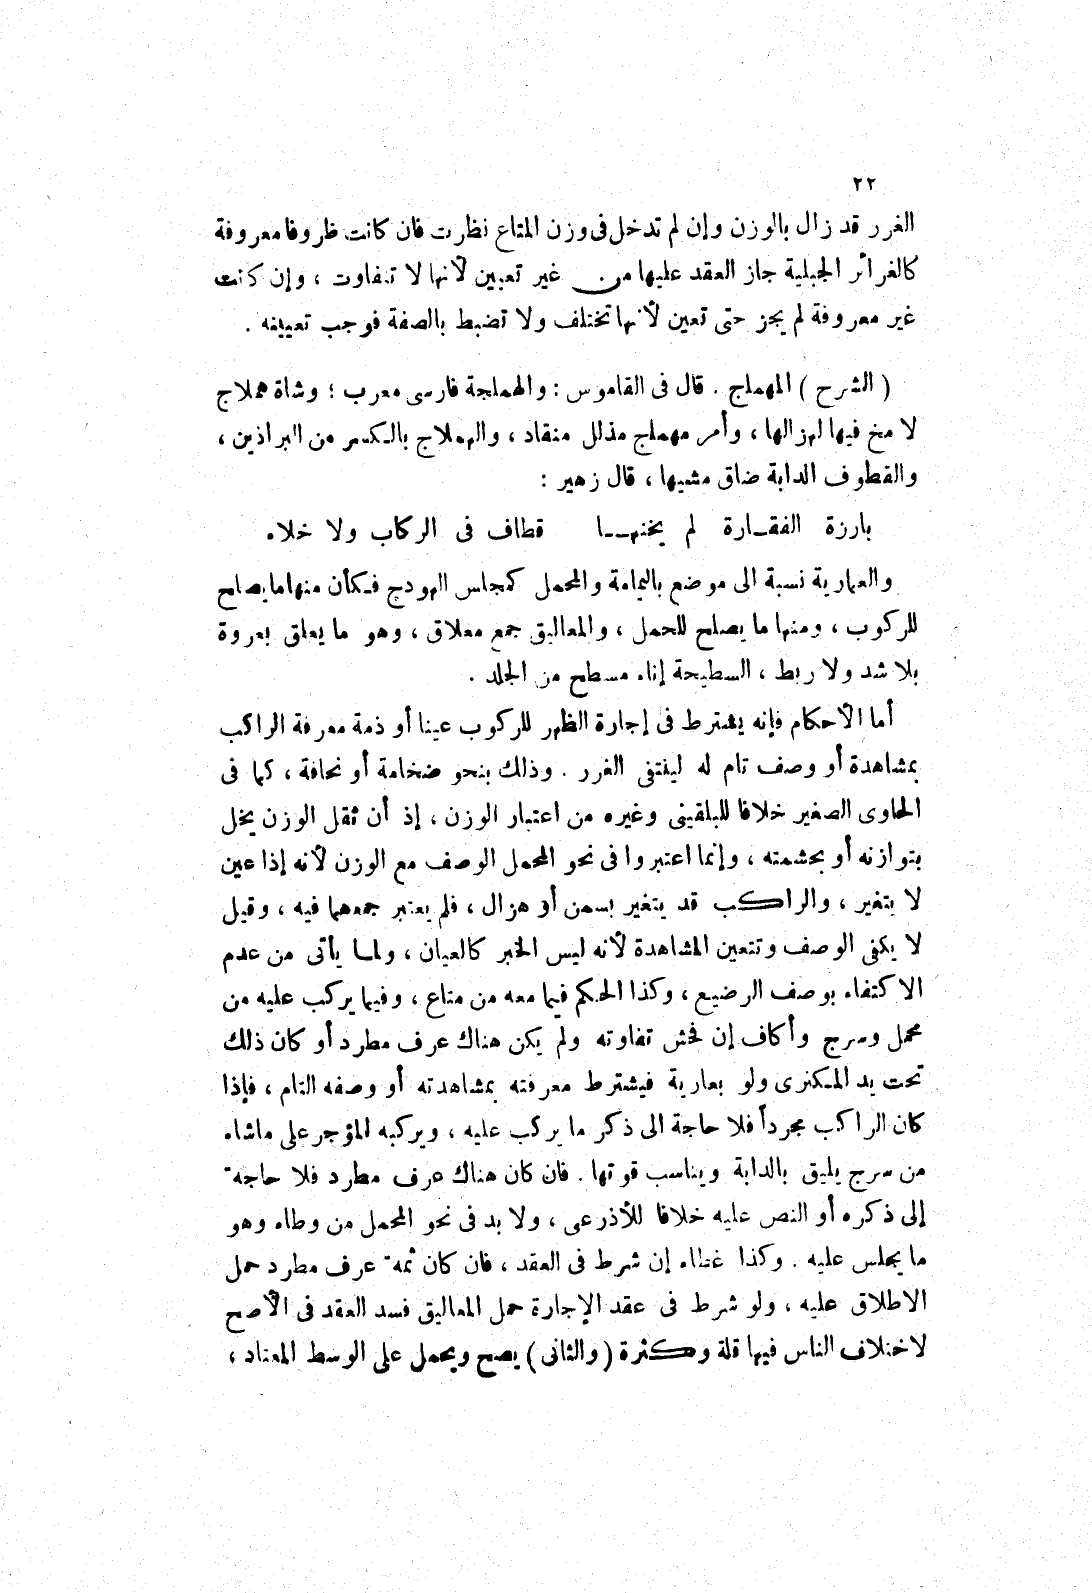 ٢٢
الغرر قد زال بالوزن وإن لم تدخل فى وزن المتاع نظرت فان كانت ظروفا معروفة
كالغرائر الجبلية جاز العقد عليها من غير تعيين لأنها لا تتفاوت ، وإن كانت
غير معروفة لم يجز حتى تعين لأنها تختلف ولا تضبط بالصفة فوجب تعيينه .
( الشرح ) المهملج . قال فى القاموس : والهملجة فارسى معرب ؛ وشاة هملاج
لا مخ فيها لهزالها ، وأمر مهملج مذلل منقاد ، والهملاج بالكسر من البراذين ،
والقطوف الدابة ضاق مشيها ، قال زهير :
بارزة الفقـارة لم يخنهــا قطاف فى الركاب ولا خلاء
والعمارية نسبة الى موضع باليمامة والمحمل كمجلس الهودج فكأن منها ما يصلح
للركوب ، ومنها ما يصلح للحمل ، والمعاليق جمع معلاق ، وهو ما يعلق بعروة
بلا شد ولا ربط ، السطيحة إناء مسطح من الجلد .
أما الأحكام فإنه يشترط فى إجارة الظهر للركوب عينا أو ذمة معرفة الراكب
بمشاهدة أو وصف تام له لينتفى الغرر . وذلك بنحو ضخامة أو نحافة ، كما فى
الحاوى الصغير خلافا للبلقينى وغيره من اعتبار الوزن ، إذ أن ثقل الوزن يخل
بتوازنه أو بحشمته ، وإنما اعتبروا فى نحو المحمل الوصف مع الوزن لأنه إذا عين
لا يتغير ، والراكب قد يتغير بسمن أو هزال ، فلم يعتبر جمعهما فيه ، وقيل
لا يكفى الوصف وتتعين المشاهدة لأنه ليس الخبر كالعيان ، ولما يأتى من عدم
الاكتفاء بوصف الرضيع ، وكذا الحكم فيما معه من متاع ، وفيما يركب عليه من
محمل وسرج وأكاف إن فحش تفاوته ولم يكن هناك عرف مطرد أو كان ذلك
تحت يد المكترى ولو بعارية فيشترط معرفته بمشاهدته أو وصفه التام ، فإذا
كان الراكب مجرداً فلا حاجة الى ذكر ما يركب عليه ، ويركبه المؤجر على ما شاء
من سرج يليق بالدابة ويناسب قوتها . فان كان هناك عرف مطرد فلا حاجة
إلى ذكره أو النص عليه خلافا للأذرعى ، ولا بد فى نحو المحمل من وطاء وهو
ما يجلس عليه . وكذا غطاء إن شرط فى العقد ، فان كان ثمة عرف مطرد حمل
الاطلاق عليه ، ولو شرط فى عقد الإجارة حمل المعاليق فسد العقد فى الأصح
لاختلاف الناس فيها قلة وكثرة ( والثانى ) يصح ويحمل على الوسط المعتاد ،